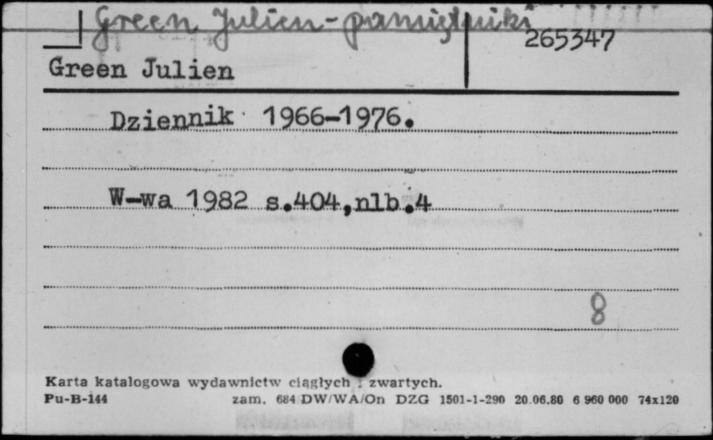 Green Julien - pamiętniki
265347
Green Julien
Dziennik 1966-1976.
W-wa 1982 s.404,nlb.4
8
Karta katalogowa wydawnictw ciągłych i zwartych.
Pu-B-144 zam. 684 DW/WA/On DZG 1501-1-290 20.06.80 6 960 000 74x120